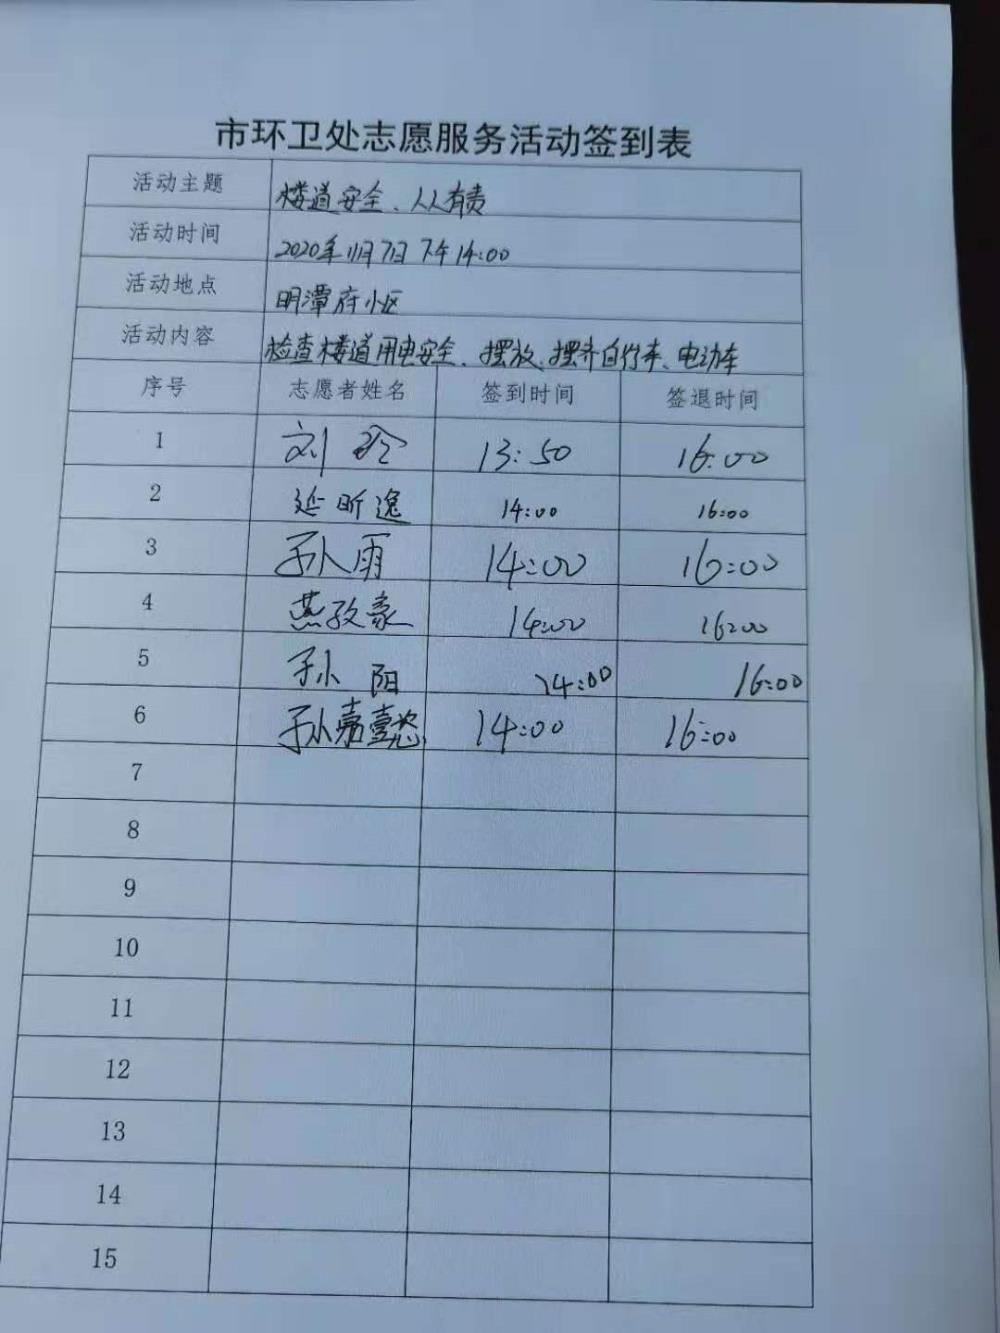 市环卫处志愿服务活动签到表
活动主题 楼道安全、人人有责
活动时间 2020年11月7日 下午14:00
活动地点 明潭府小区
活动内容 检查楼道用电安全、摆放、摆齐自行车、电动车
序号 志愿者姓名 签到时间 签退时间
1 刘玲 13:50 16:00
2 延昕逸 14:00 16:00
3 孙雨 14:00 16:00
4 燕孜豪 14:00 16:00
5 孙阳 14:00 16:00
6 孙嘉壹 14:00 16:00
7
8
9
10
11
12
13
14
15